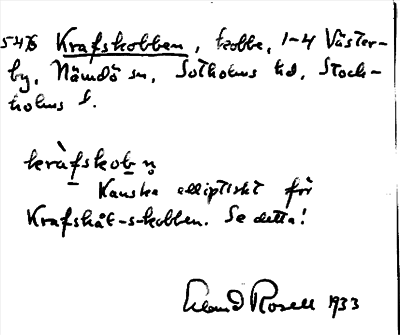 5476 Krafskobben, kobbe, 1-4 Väster-
by, Nämdö sn, Sotholms hd, Stock-
holms l.
kràfskob̥n̥
Kanske elliptiskt för
Krafskåt-s-kobben. Se detta!
Erland Rosell 1933